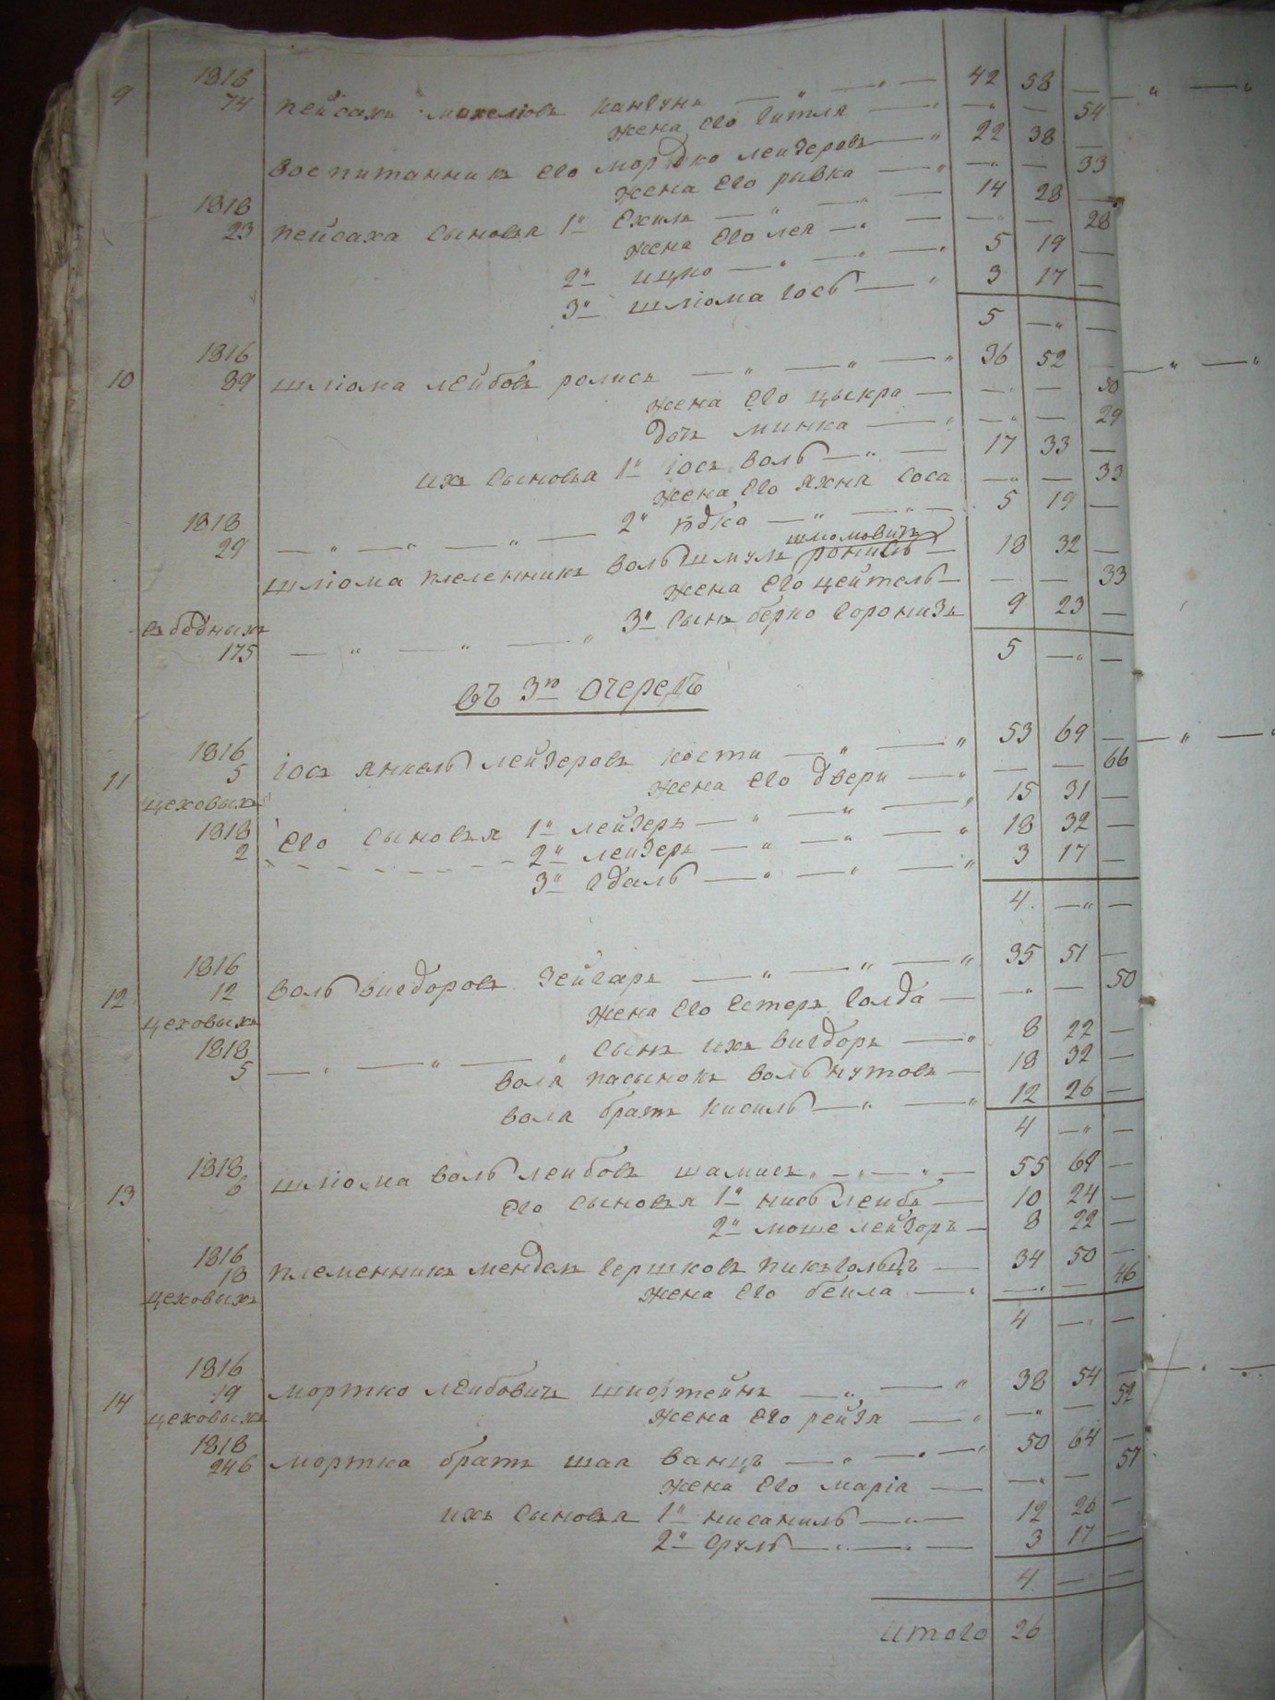 1816 42 58 —
9 74 Пейсахъ Михелювъ Канчукъ — „ — „ —
жена его Гитля — „ — 54
Воспитанникъ его Мордко Лейзеровъ — „ 22 38 —
жена его Ривка — „ — 33
1818 14 28 —
23 Пейсаха сыновья 1й Ехиль — „ —
жена его Лея — „ — 28
2й Ицко — „ — „ 5 19 —
3й Шліома Іось — „ 3 17 —
5 — „ —
1816 36 52 —
10 89 Шліома Лейбовъ Ролисъ — „ — „ — „
жена его Цыкра — — „ — 50
дочь Минка — „ — „ — 29
ихъ сыновья 1й Іось Воль — „ — 17 33 —
жена его Яхня Соса — „ — 33
1818 2й Юдка — „ — „ — 5 19 —
29 — „ — „ — „ — Шмюловичъ
Шліома племенникъ Воль Шмуль Ронисъ — 18 32 —
жена его Цейтель — — — 33
въ бедныхъ 3й сынъ Берко Горонизъ 9 23 —
175 — „ — „ — „
5 — „ —
въ 3ю очередь
1816 53 69 —
11 5 Іось Янкель Лейзеровъ Кости — „ — „
цеховыхъ жена его Двери — „ — — 66
1818 Его сыновья 1й Лейзеръ — „ — „ — „ 15 31 —
2 2й Лейзеръ — „ — „ — „ 18 32 —
3й Гдаль — „ — „ — „ 3 17 —
4 — „ —
1816 35 51 —
12 12 Воль Вигдоровъ Зейгаръ — „ — „ — „
цеховыхъ жена его Естеръ Голда — — „ — 50
1818 сынъ ихъ Вигдоръ — „ 8 22 —
5 — „ — „ — „
Воля пасынокъ Воль Нутовъ — 18 32 —
Воля братъ Кисиль — „ — „ 12 26 —
4 — „ —
1818 55 69 —
13 6 Шліома Воль Лейбовъ Шамисъ — „ — „ —
Его сыновья 1й Нись Лейбъ — 10 24 —
2й Моше Лейзоръ — 8 22 —
1816 34 50 —
18 Племенникъ Мендель Гершковъ Пикгольцъ —
цеховыхъ жена его Бейла — „ — „ — 46
4 — „ —
1816 38 54 —
14 19 Мортко Лейбовичъ Шнортейнъ — „ — „
цеховыхъ жена его Рейзя — „ — „ — 52
1818 50 64 —
246 Мортка братъ Шая Ванцъ — „ — „ — „
жена его Марія — — „ — 57
ихъ сыновья 1й Нисаниль — „ — 12 26 —
2й Сруль — „ — „ — 3 17 —
4 — —
Итого 26